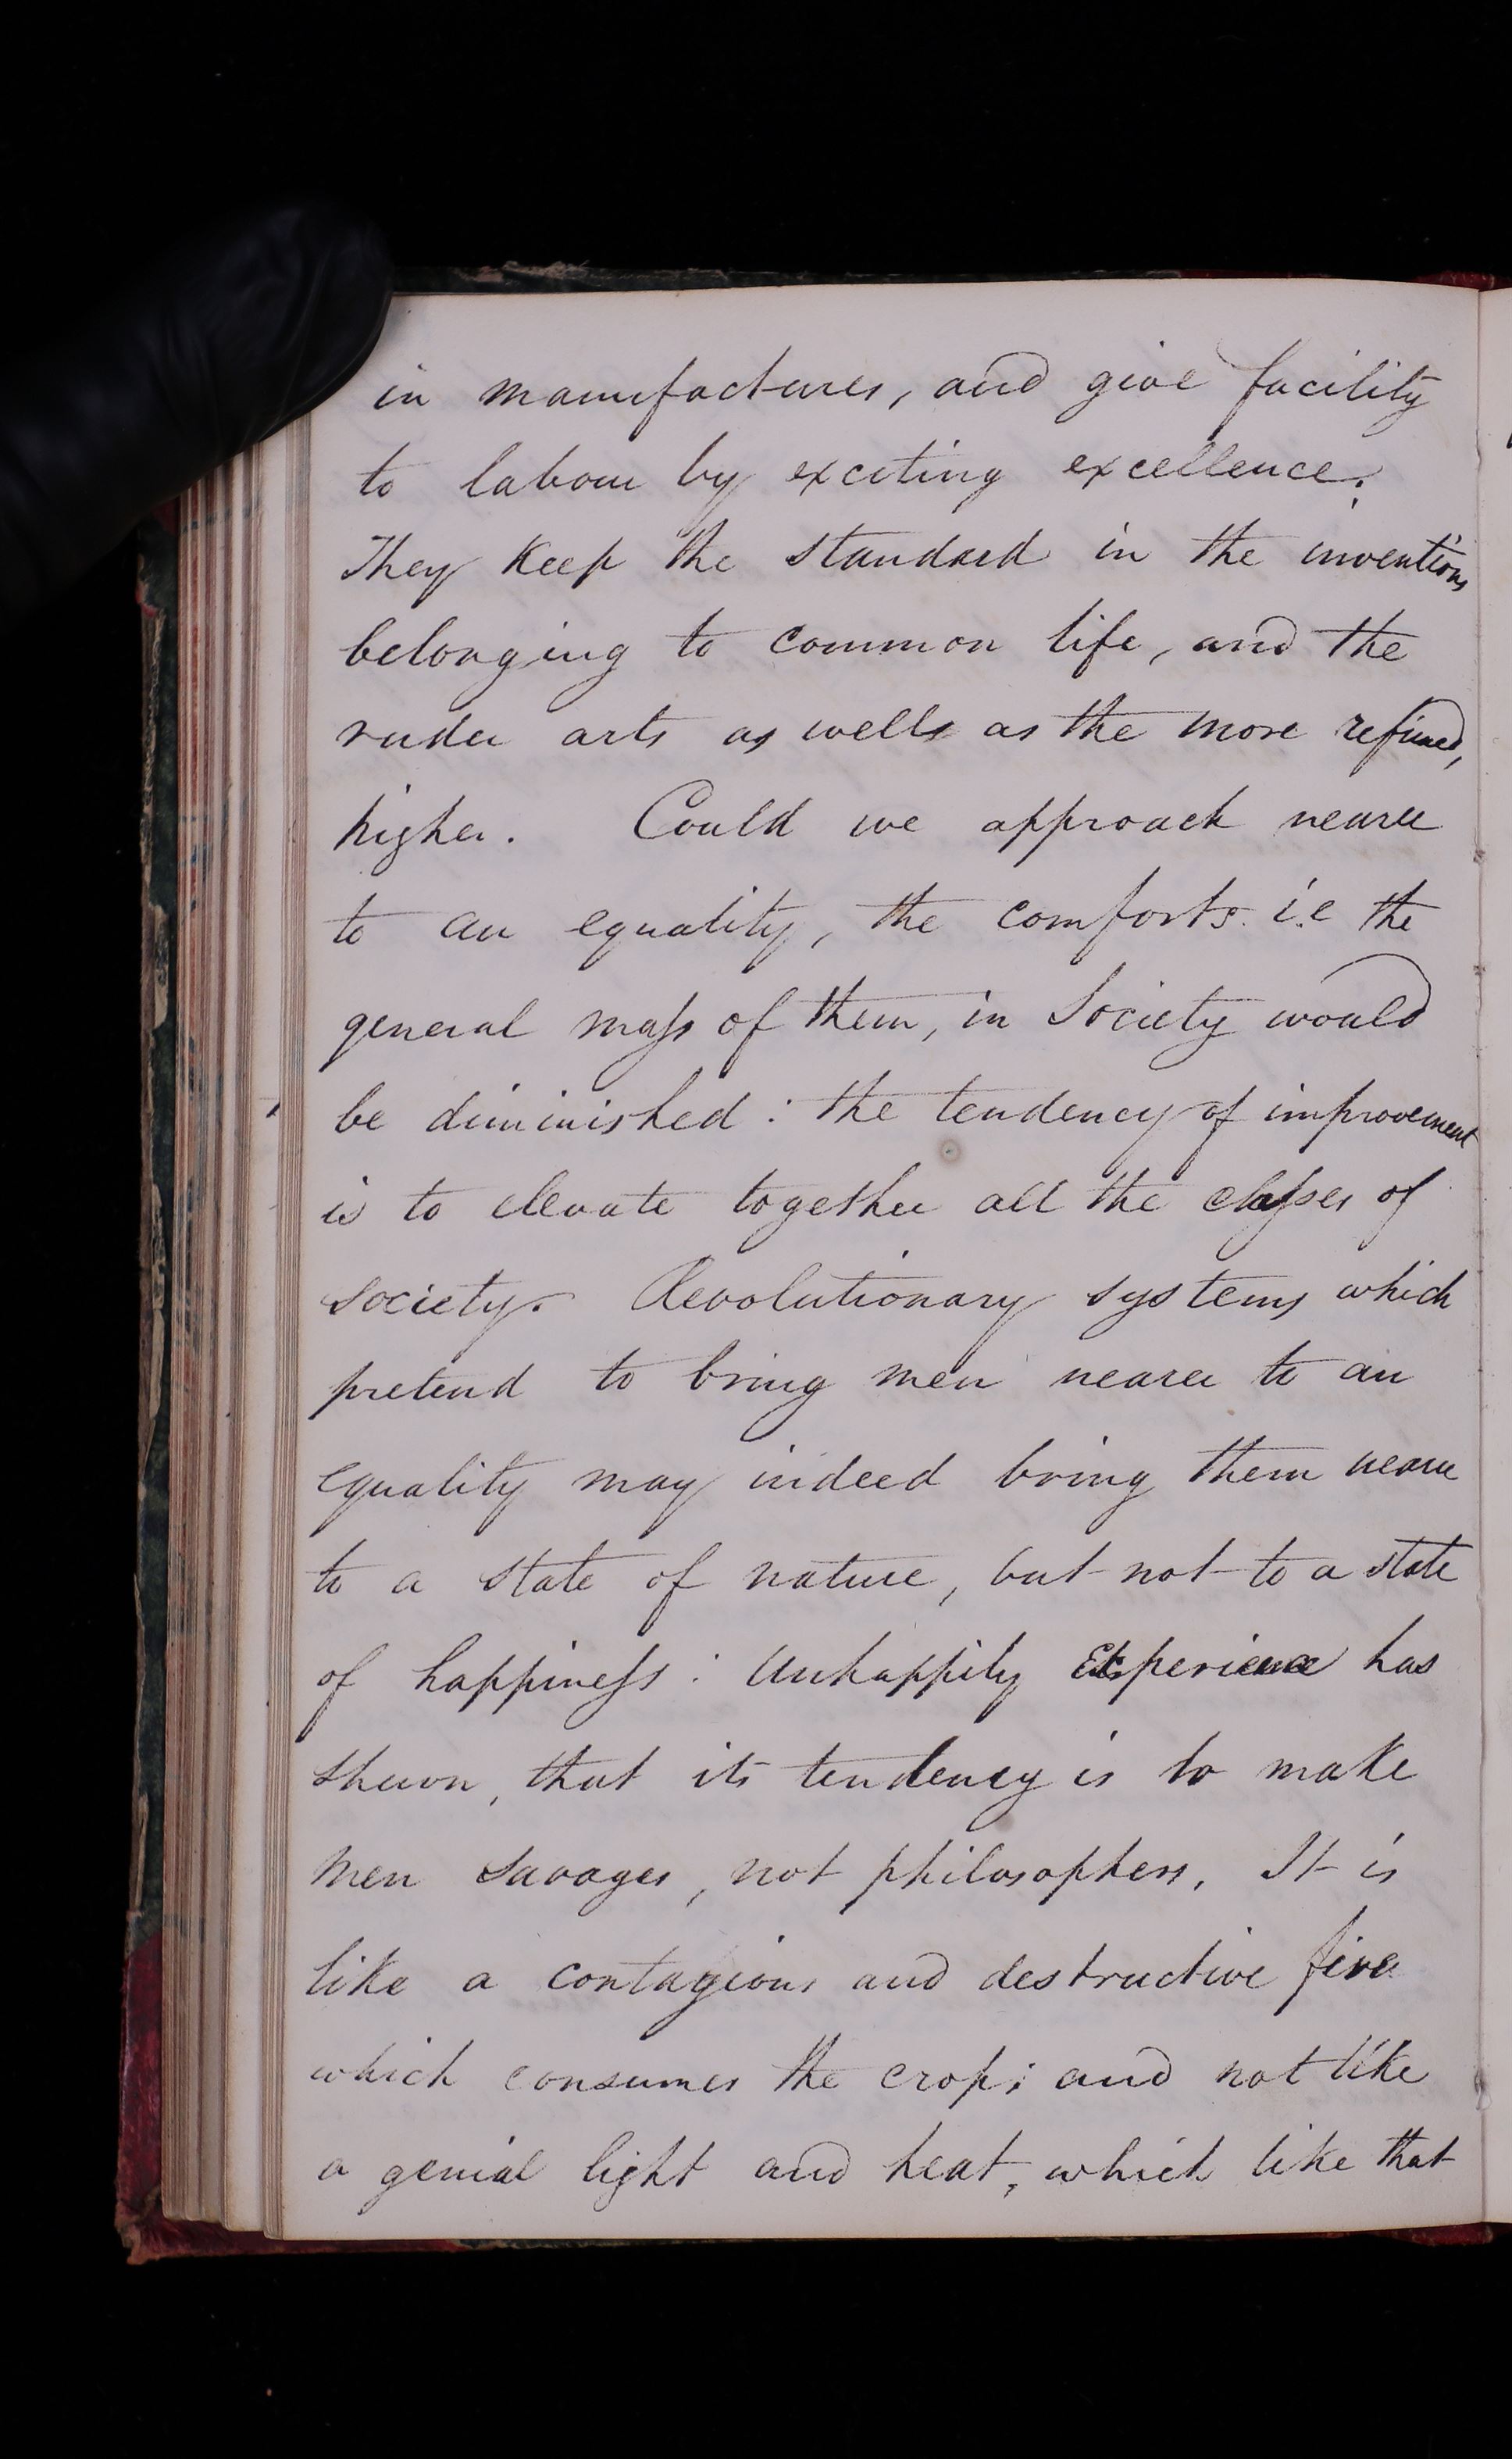 in manufactures, and give facility
to labour by exciting excellence.
They keep the standard in the inventions
belonging to common life, and the
ruder arts as wells as the more refined,
higher. Could we approach nearer
to an equality, the comforts. i.e the
general mass of them, in Society would
be diminished: the tendency of improvement
is to elevate together all the classes of
society. Revolutionary systems which
pretend to bring men nearer to an
equality may indeed bring them nearer
to a state of nature, but not to a state
of happiness: Unhappily Experience has
shewn, that its tendency is to make
men savages, not philosophers. It is
like a contagious and destructive fire
which consumes the crop; and not like
a genial light and heat, which like that